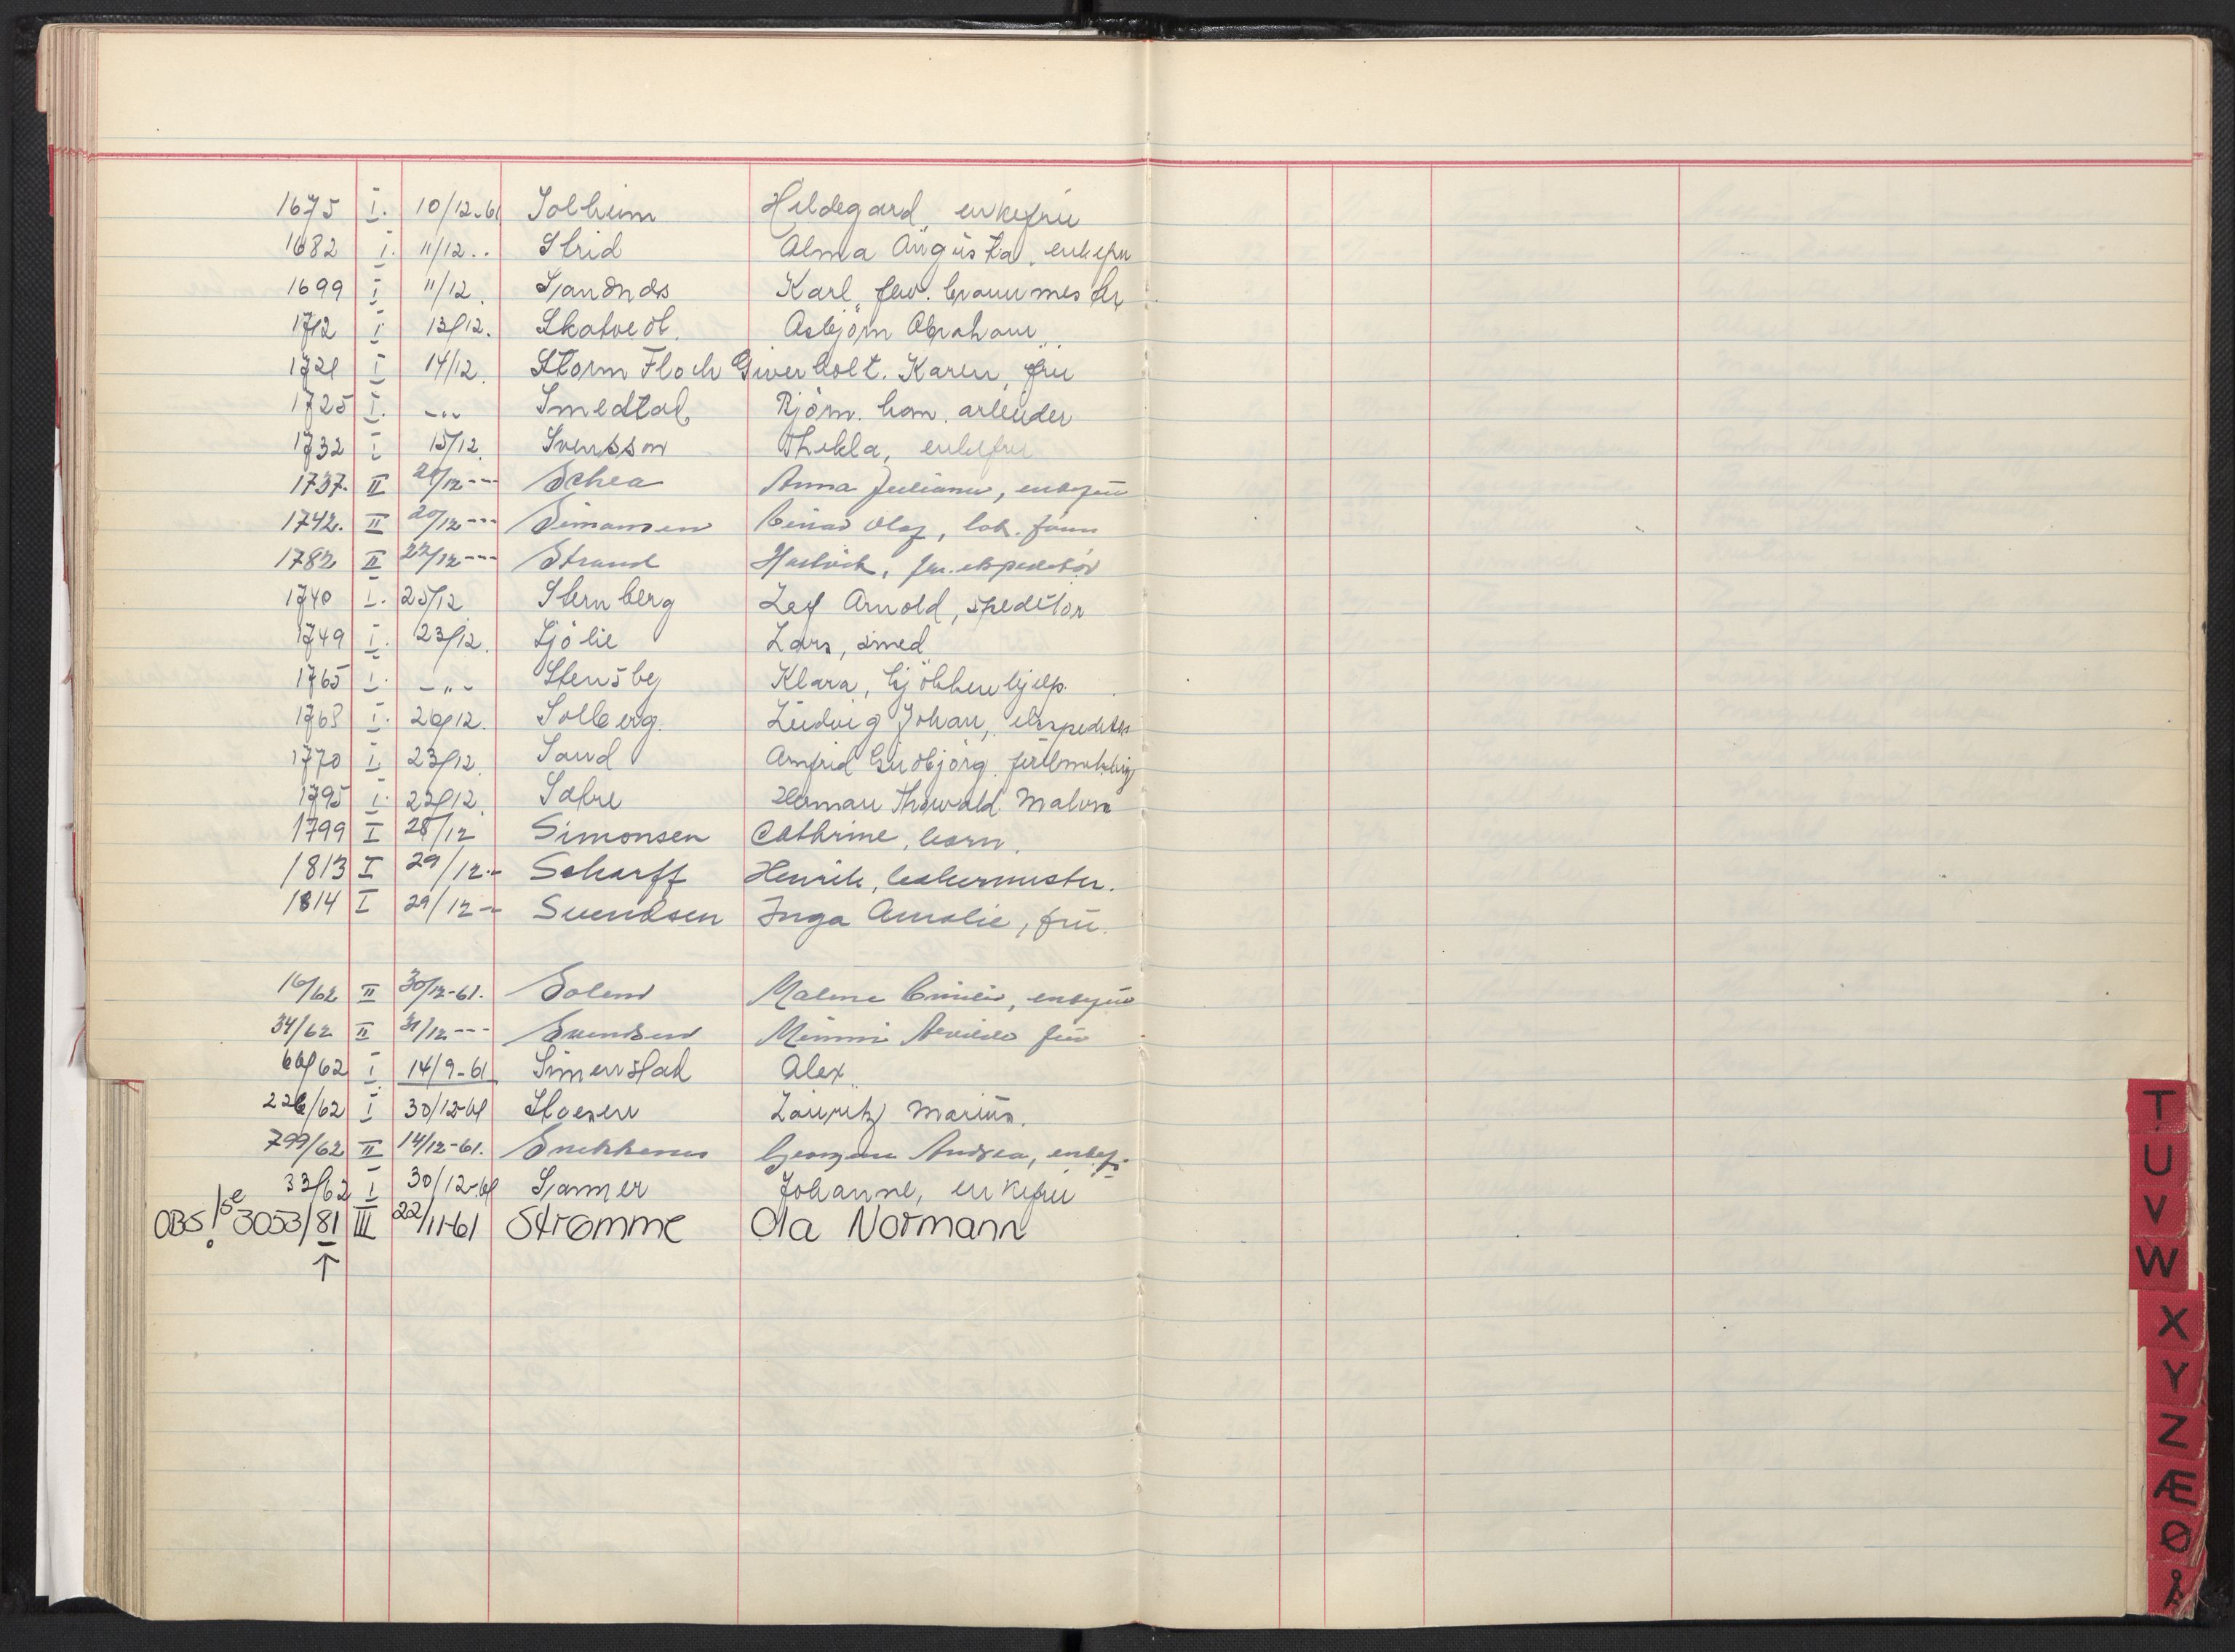 1675 I. 10/12-61 Solheim Hildegard, enkefru
1682 I. 11/12.. Strid Alma Augusta, enkefru
1699 I 11/12. Sandnes Karl, fhv.
1712 I 13/12. Skatvedt. Asbjörn Abraham
1721 I 14/12. Storm Floch Giverholt. Karen, fru
1725 I. -"- Smedtad Björn.
1732 I 15/12. Svensson Thekla, enkefru
1737. II 20/12--- Schea Anna Juliane, enkefru
1742. II 20/12--- Simonsen Einar Olaf, lok.
1782 II 22/12--- Strand fhv. ekspeditör
1740 I. 25/12 Sternberg Leif Arnold, speditör
1749 I. 23/12. Sjölie Lars, smed
1765 I. -"- Stensby Klara, kjökkenhjelp.
1768 I. 20/12. Solberg. Ludvig Johan, ekspeditör
1770 I. 23/12. Sand Arnfrid Gudbjörg.
1795 I. 22/12. Sabre Herman Thorvald.
1799 I 28/12 Simonsen Cathrine, barn.
1813 I 29/12-- Scharff Henrik, bakermester.
1814 I 29/12-- Svendsen Inga Amalie, fru.
16/62 II 30/12-61. Solem Malene Emilie, enkefru
34/62 II 31/12--- Svendsen Mimmi fru
66/62 I 14/9-61 Simenstad Alex
226/62 I 30/12-61 Lauritz Marius.
799/62 II 14/12-61. Georgine Andrea, enkef.
33/62 I 30/12-61 Sanner Johanne, enkefru
OBS! se 3053/81 III 22/11-61 Strømme Ola Normann
↑
T
U
V
W
X
Y
Z
Æ
Ø
Å